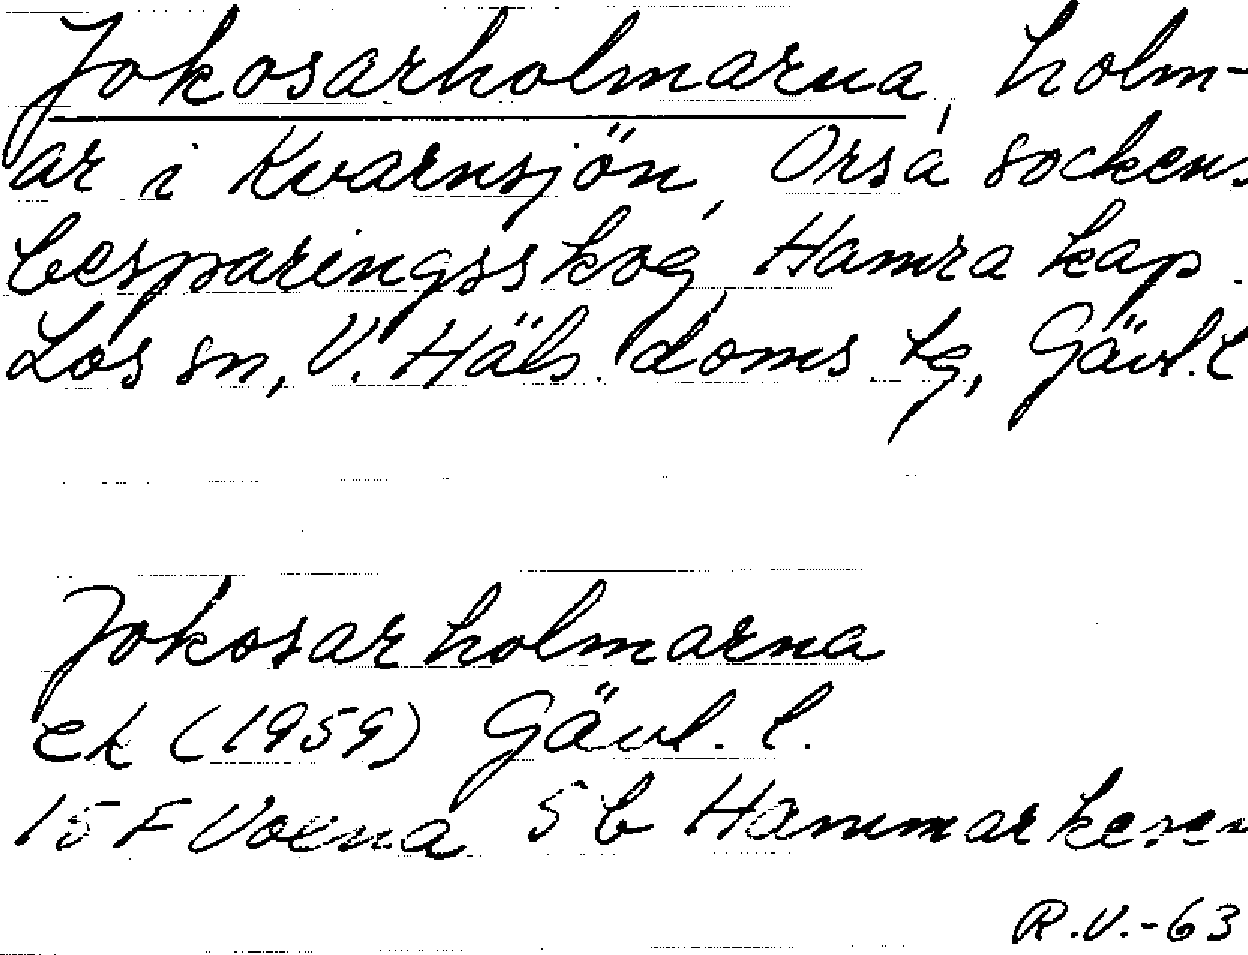 Jokosarholmarna, holm-
ar i Kvarnsjön, Orsa sockens
besparingsskog, Hamra kap.
Los sn, V. Häls. doms. tg, Gävl. l
Jokosarholmarna
ek (1959) Gävl. l.
15 F Voxna 5 b Hammarkeren
R.V.-63